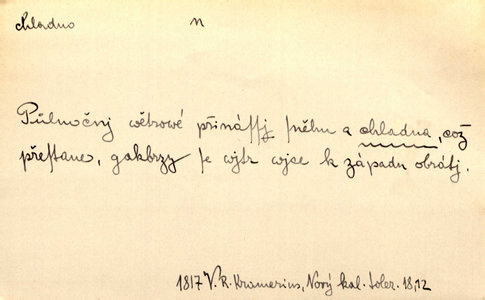 chladno n
Půlnočnj wětrowé přinássj sněhu a chladna, což
přestane, gakbrzy se wjtr wjce k západu obrátj.
1817 V. R. Kramerius, Nový kal. toler. 18,12